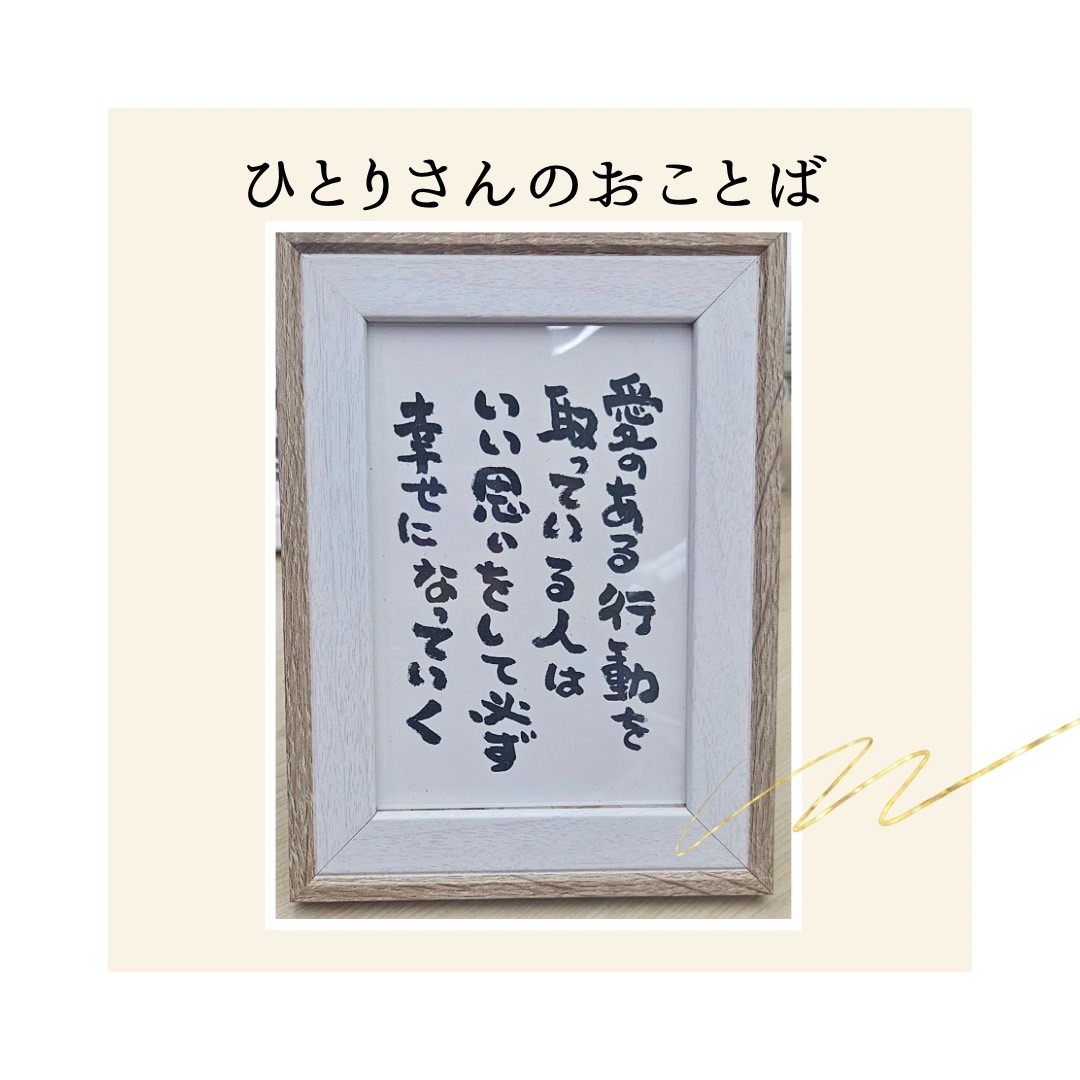 ひとりさんのおことば
愛のある行動を
取っている人は
いい思いをして必ず
幸せになっていく